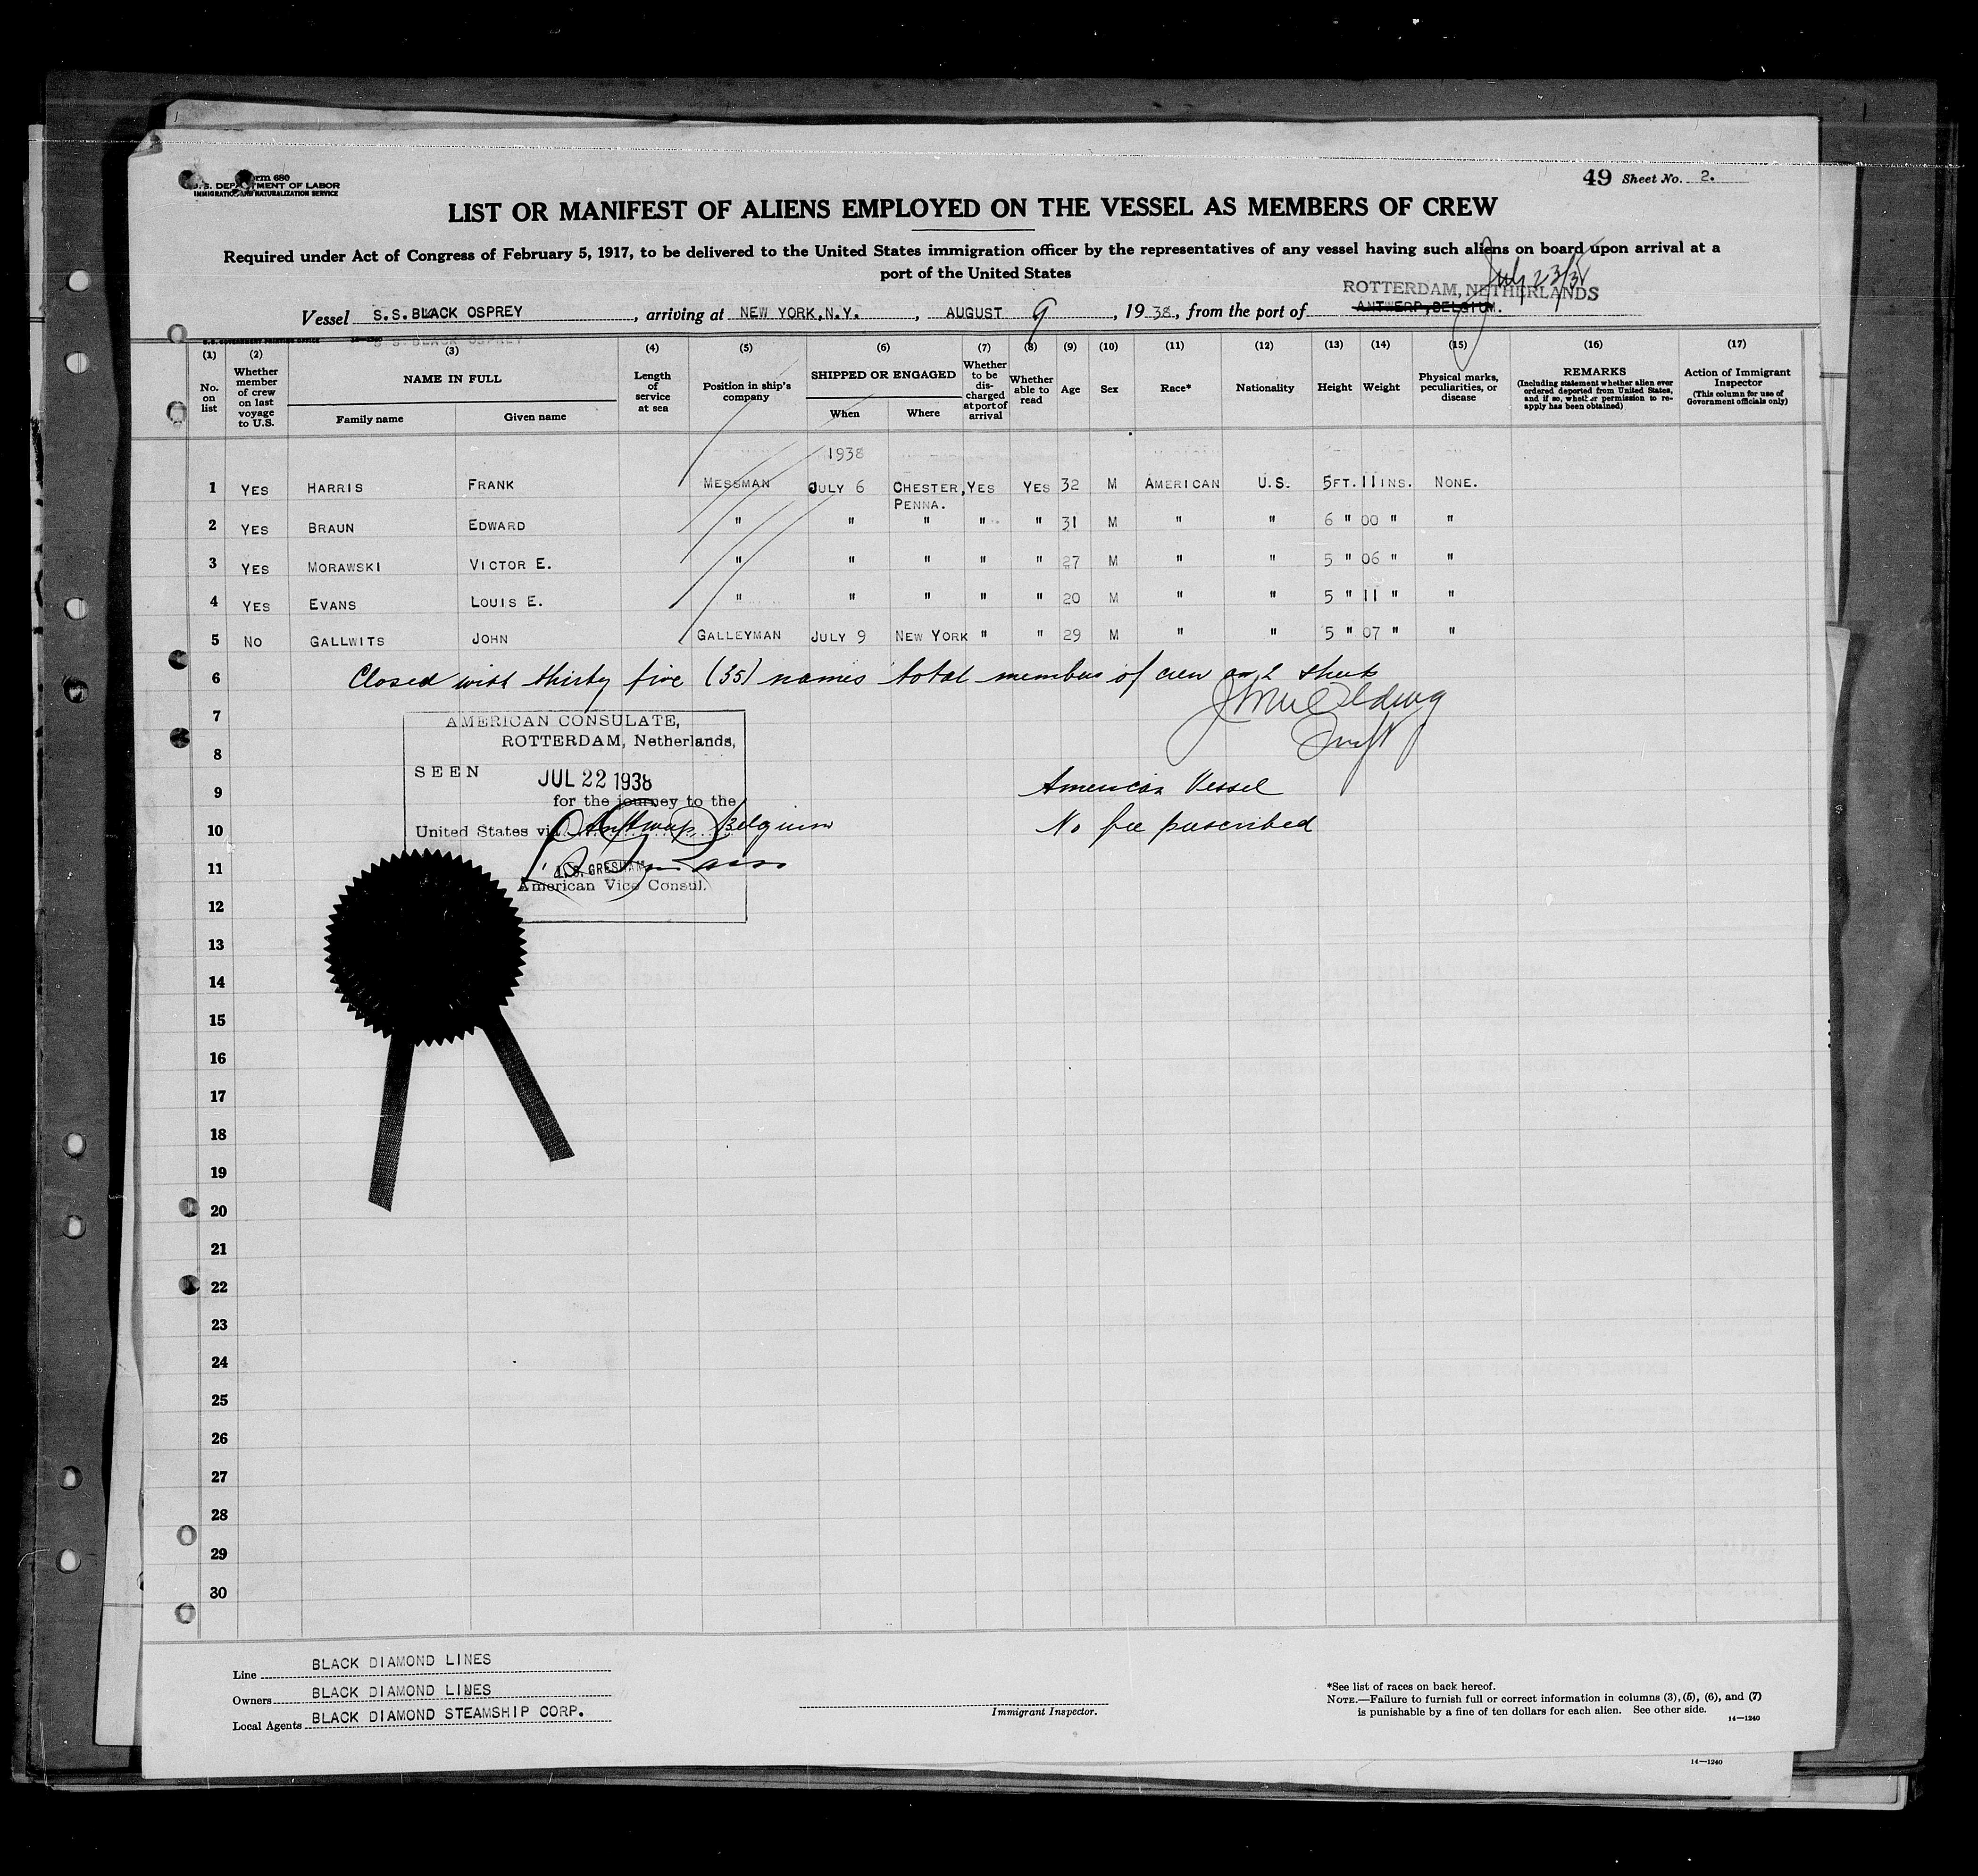 Form 680
U. S. DEPARTMENT OF LABOR
IMMIGRATION AND NATURALIZATION SERVICE
49 Sheet No. 2.
LIST OR MANIFEST OF ALIENS EMPLOYED ON THE VESSEL AS MEMBERS OF CREW
Required under Act of Congress of February 5, 1917, to be delivered to the United States immigration officer by the representatives of any vessel having such aliens on board upon arrival at a
port of the United States
July 23/38
ROTTERDAM, NETHERLANDS
Vessel S.S. BLACK OSPREY, arriving at NEW YORK, N.Y., AUGUST 9, 1938, from the port of ANTWERP, BELGIUM.
U.S. GOVERNMENT PRINTING OFFICE S.S. BLACK OSPREY
(1) No. on list
(2) Whether member of crew on last voyage to U.S.
(3) NAME IN FULL Family name Given name
(4) Length of service at sea
(5) Position in ship's company
(6) SHIPPED OR ENGAGED When Where
(7) Whether to be discharged at port of arrival
(8) Whether able to read
(9) Age
(10) Sex
(11) Race*
(12) Nationality
(13) Height
(14) Weight
(15) Physical marks, peculiarities, or disease
(16) REMARKS (Including statement whether alien ever ordered deported from United States, and if so, whether permission to reapply has been obtained)
(17) Action of Immigrant Inspector (This column for use of Government officials only)
1938
1 YES HARRIS FRANK MESSMAN JULY 6 CHESTER, PENNA. YES YES 32 M AMERICAN U.S. 5FT. 11INS. NONE.
2 YES BRAUN EDWARD " " " " " 31 M " " 6 " 00 " "
3 YES MORAWSKI VICTOR E. " " " " " 27 M " " 5 " 06 " "
4 YES EVANS LOUIS E. " " " " " 20 M " " 5 " 11 " "
5 NO GALLWITS JOHN GALLEYMAN JULY 9 NEW YORK " " 29 M " " 5 " 07 " "
6 Closed with thirty five (35) names total members of crew on 2 sheets
7
8
9 American Vessel
10 No fee prescribed
11
12
13
14
15
16
17
18
19
20
21
22
23
24
25
26
27
28
29
30
AMERICAN CONSULATE,
ROTTERDAM, Netherlands,
SEEN JUL 22 1938
for the journey to the
United States via Antwerp Belgium
GRESHAM
American Vice Consul.
Line BLACK DIAMOND LINES
Owners BLACK DIAMOND LINES
Local Agents BLACK DIAMOND STEAMSHIP CORP.
Immigrant Inspector.
*See list of races on back hereof.
NOTE.—Failure to furnish full or correct information in columns (3), (5), (6), and (7)
is punishable by a fine of ten dollars for each alien. See other side.
14—1240
14—1240